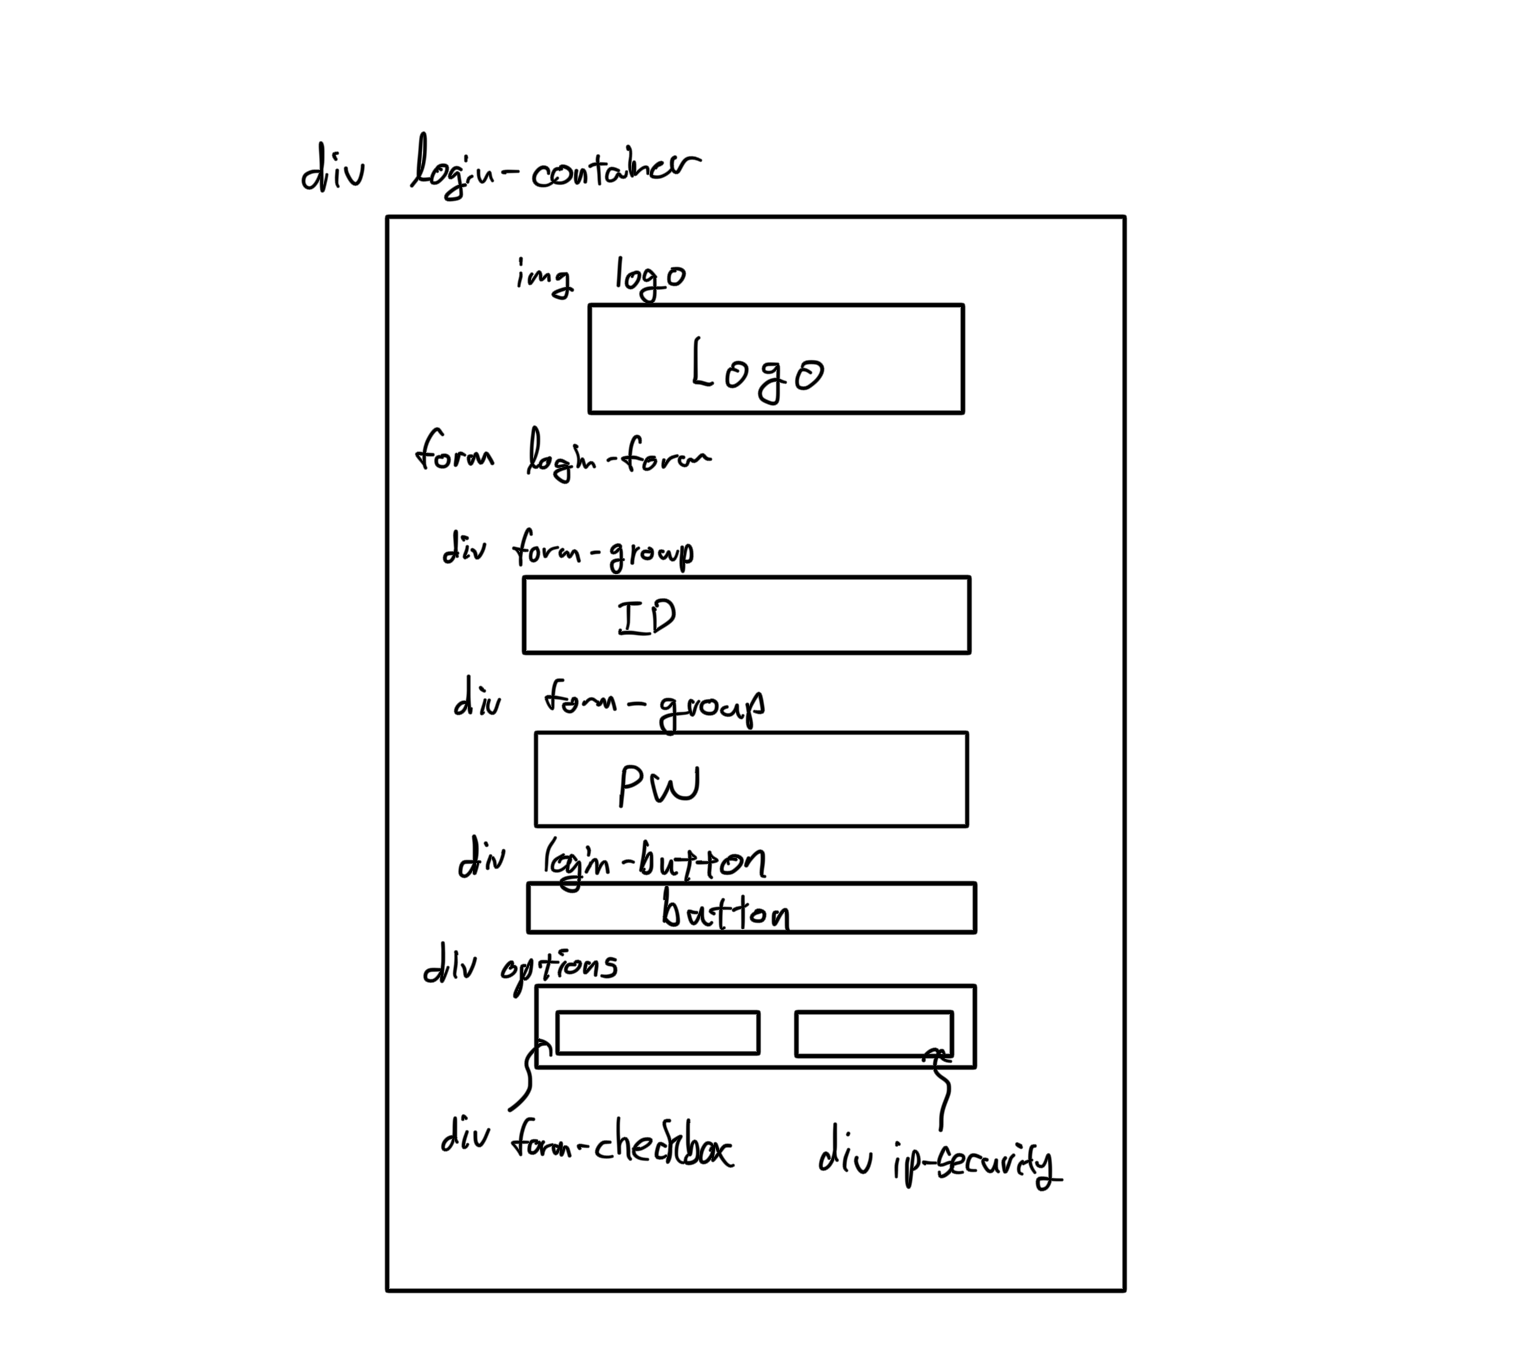 div login-container
img logo
Logo
form login-form
div form-group
ID
div form-group
PW
div login-button
button
div options
div form-checkbox
div ip-security